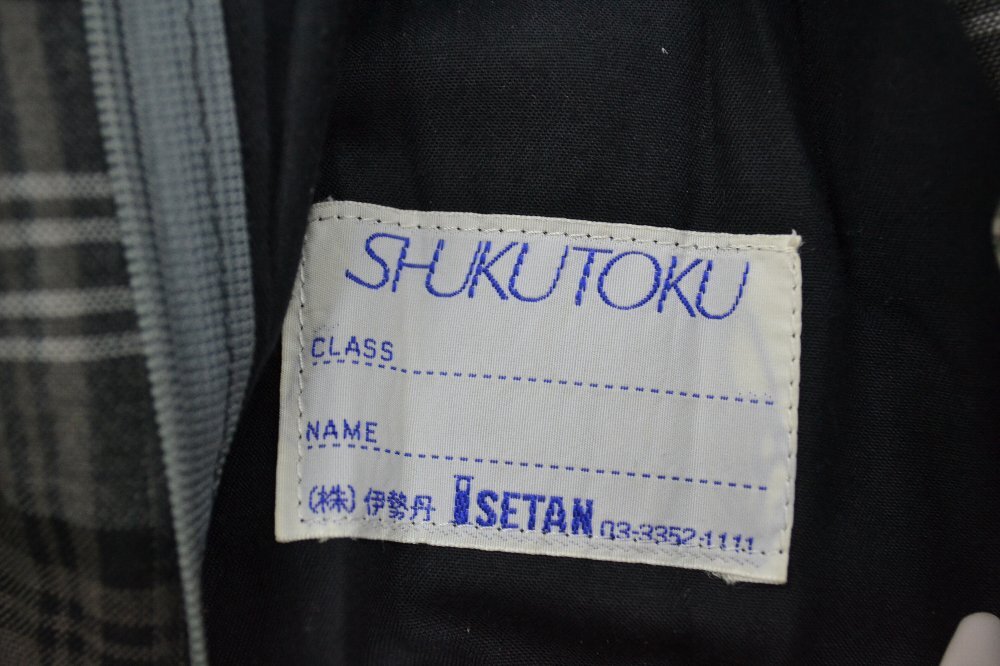 SHUKUTOKU
CLASS
NAME
(株) 伊勢丹 ISETAN 03-3352-1111